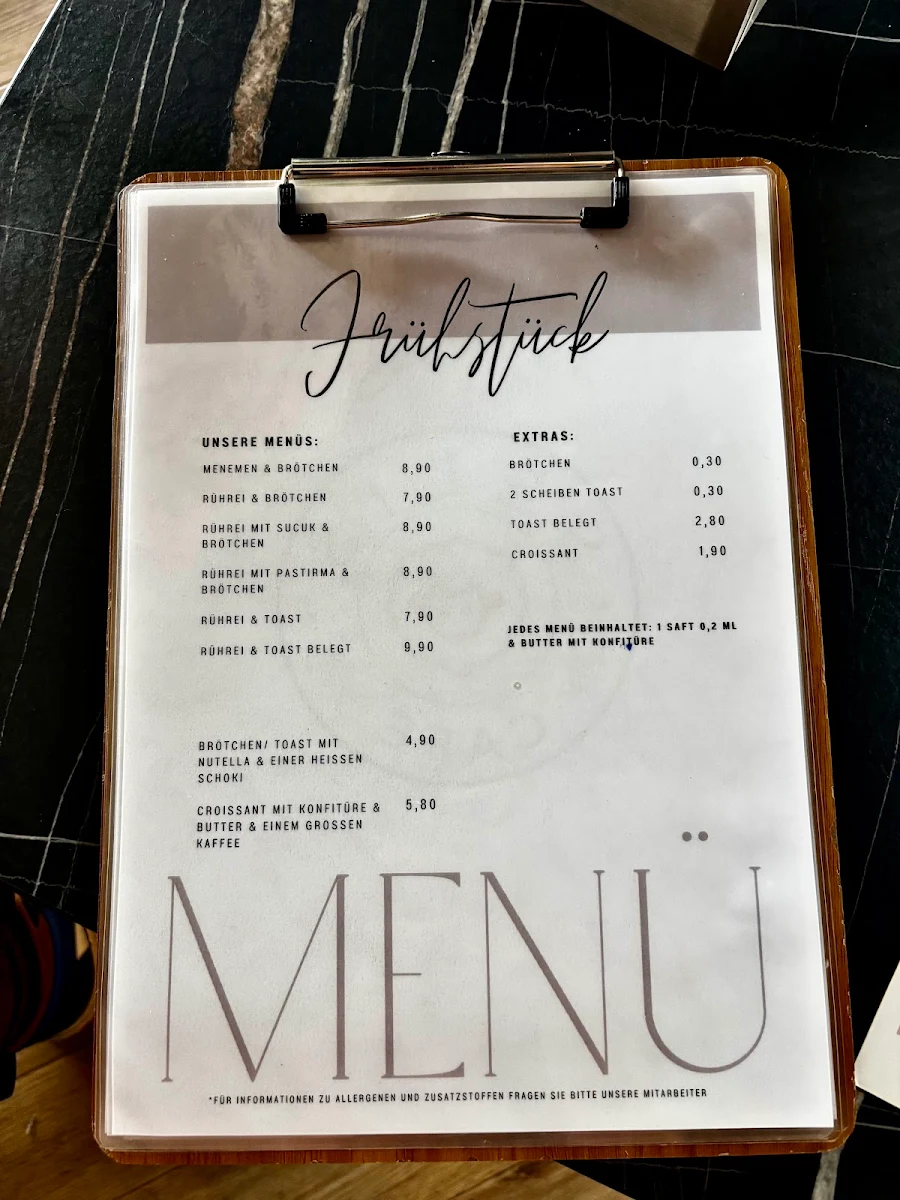 Frühstück
UNSERE MENÜS:
MENEMEN & BRÖTCHEN 8,90
RÜHREI & BRÖTCHEN 7,90
RÜHREI MIT SUCUK & 8,90
BRÖTCHEN
RÜHREI MIT PASTIRMA & 8,90
BRÖTCHEN
RÜHREI & TOAST 7,90
RÜHREI & TOAST BELEGT 9,90
BRÖTCHEN/ TOAST MIT 4,90
NUTELLA & EINER HEISSEN
SCHOKI
CROISSANT MIT KONFITÜRE & 5,80
BUTTER & EINEM GROSSEN
KAFFEE
EXTRAS:
BRÖTCHEN 0,30
2 SCHEIBEN TOAST 0,30
TOAST BELEGT 2,80
CROISSANT 1,90
JEDES MENÜ BEINHALTET: 1 SAFT 0,2 ML
& BUTTER MIT KONFITÜRE
MENÜ
*FÜR INFORMATIONEN ZU ALLERGENEN UND ZUSATZSTOFFEN FRAGEN SIE BITTE UNSERE MITARBEITER